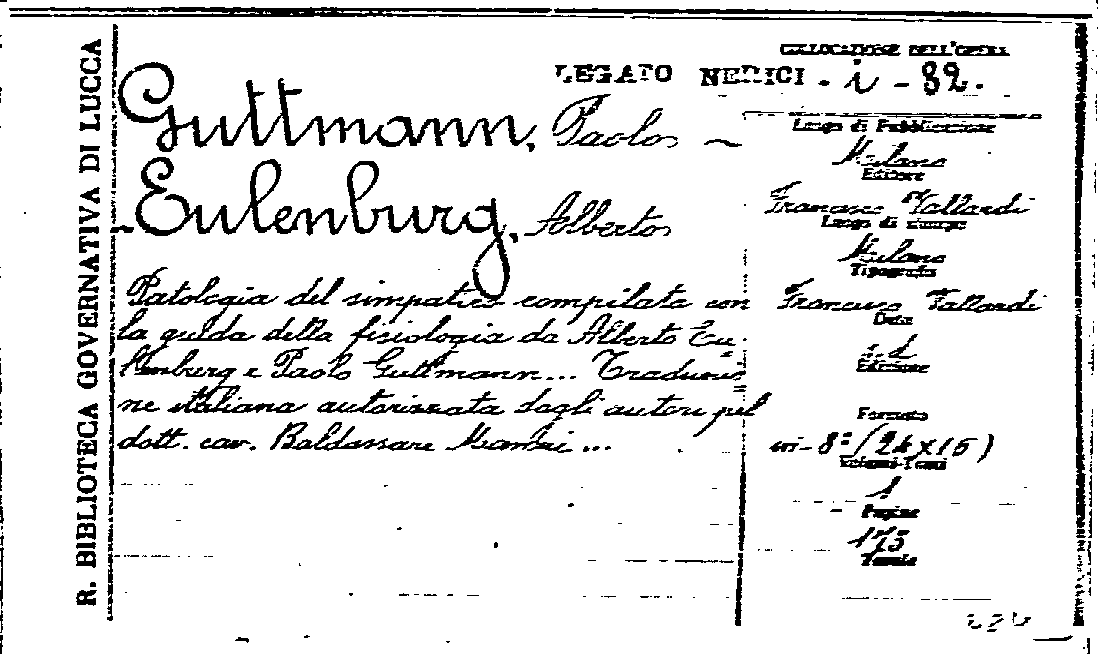 R. BIBLIOTECA GOVERNATIVA DI LUCCA
COLLOCAZIONE DELL'OPERA
LEGATO NERICI - i - 82.
Guttmann, Paolo ~
Eulenburg, Alberto
Patologia del simpatico compilata con
la guida della fisiologia da Alberto Eu-
lenburg e Paolo Guttmann... Traduzio=
ne italiana autorizzata dagli autori pel
dott. cav. Baldassare ...
Luogo di Pubblicazione
Milano
Editore
Francesco Vallardi
Luogo di stampa
Milano
Tipografia
Francesco Vallardi
Data
s.d.
Edizione
Formato
in-8º (24x15)
Volumi-Tomi
1
Pagine
173
Tavole